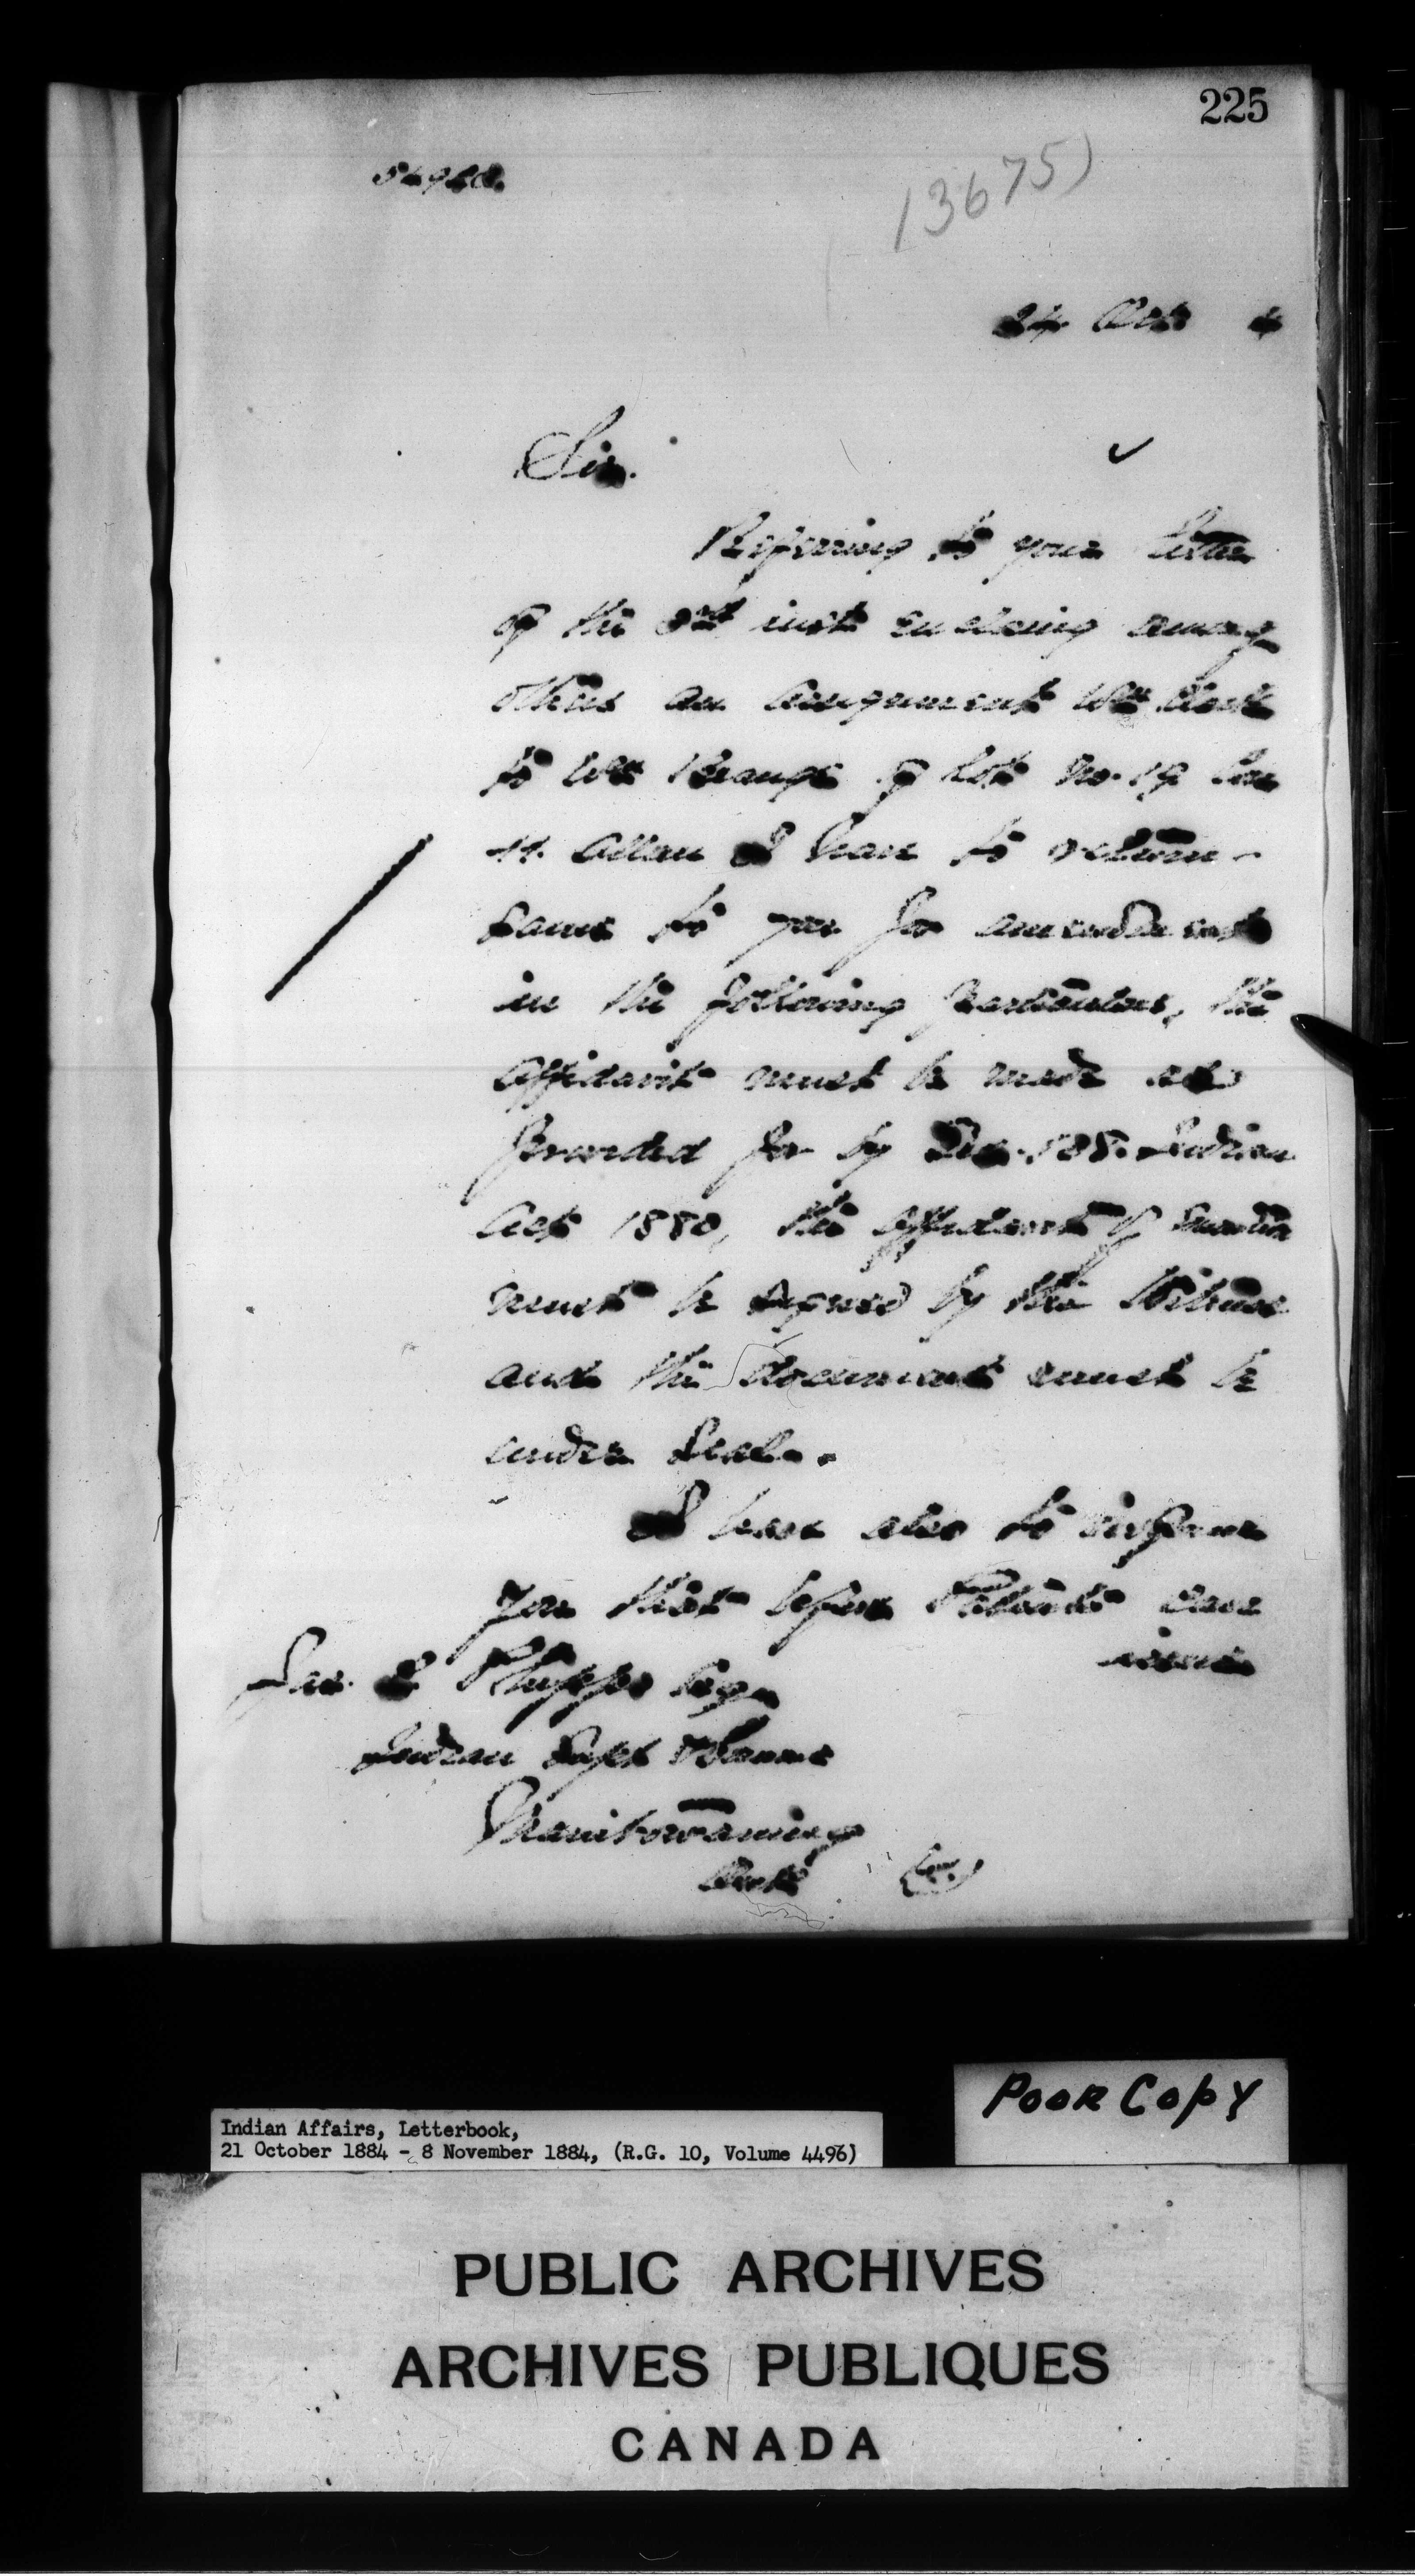 225
13675)
24 Oct 4
Sir.
Referring to your letter
of the inst enclosing among
others an assignment Wm
to Wm of Lot No. 19 Con
11. Allan I have to return
same to you for amendment
in the following particulars, the
affidavit must be made as
provided for by Sec. Indian
Act 1880, the affidavit of
must be signed by the Witness
and the document must be
under Seal.
I have also to inform
you that before Patents can
issue
Jas. C Phipps Esq
Indian Supt
Manitowaning
Ont
Poor Copy
Indian Affairs, Letterbook,
21 October 1884 - 8 November 1884, (R.G. 10, Volume 4496)
PUBLIC ARCHIVES
ARCHIVES PUBLIQUES
CANADA